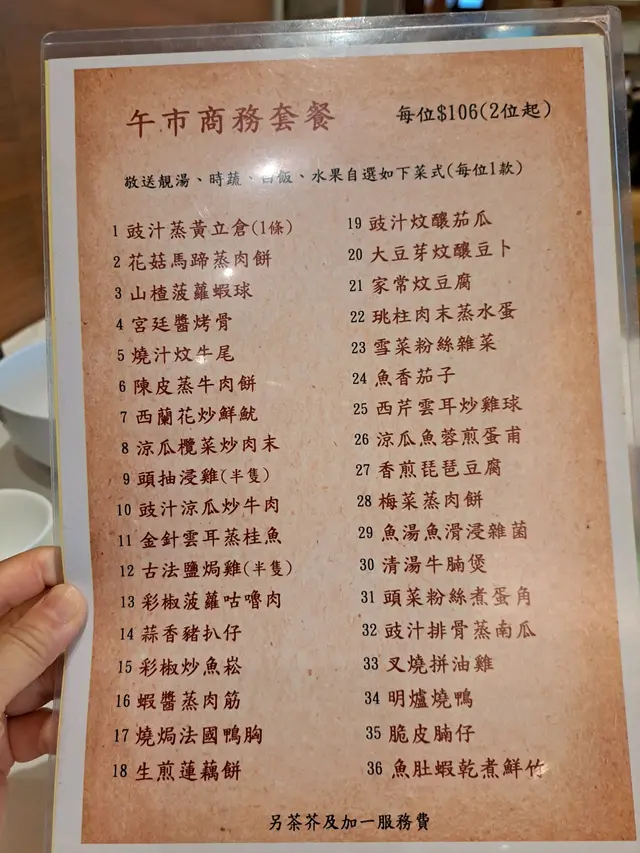 午市商務套餐
每位$106(2位起)
敬送靚湯、時蔬、白飯、水果自選如下菜式(每位1款)
1 豉汁蒸黃立倉(1條)
2 花菇馬蹄蒸肉餅
3 山楂菠蘿蝦球
4 宮廷醬烤骨
5 燒汁炆牛尾
6 陳皮蒸牛肉餅
7 西蘭花炒鮮魷
8 涼瓜欖菜炒肉末
9 頭抽浸雞(半隻)
10 豉汁涼瓜炒牛肉
11 金針雲耳蒸桂魚
12 古法鹽焗雞(半隻)
13 彩椒菠蘿咕嚕肉
14 蒜香豬扒仔
15 彩椒炒魚崧
16 蝦醬蒸肉筋
17 燒焗法國鴨胸
18 生煎蓮藕餅
19 豉汁炆釀茄瓜
20 大豆芽炆釀豆卜
21 家常炆豆腐
22 珧柱肉末蒸水蛋
23 雪菜粉絲雜菜
24 魚香茄子
25 西芹雲耳炒雞球
26 涼瓜魚蓉煎蛋甫
27 香煎琵琶豆腐
28 梅菜蒸肉餅
29 魚湯魚滑浸雜菌
30 清湯牛腩煲
31 頭菜粉絲煮蛋角
32 豉汁排骨蒸南瓜
33 叉燒拼油雞
34 明爐燒鴨
35 脆皮腩仔
36 魚肚蝦乾煮鮮竹
另茶芥及加一服務費